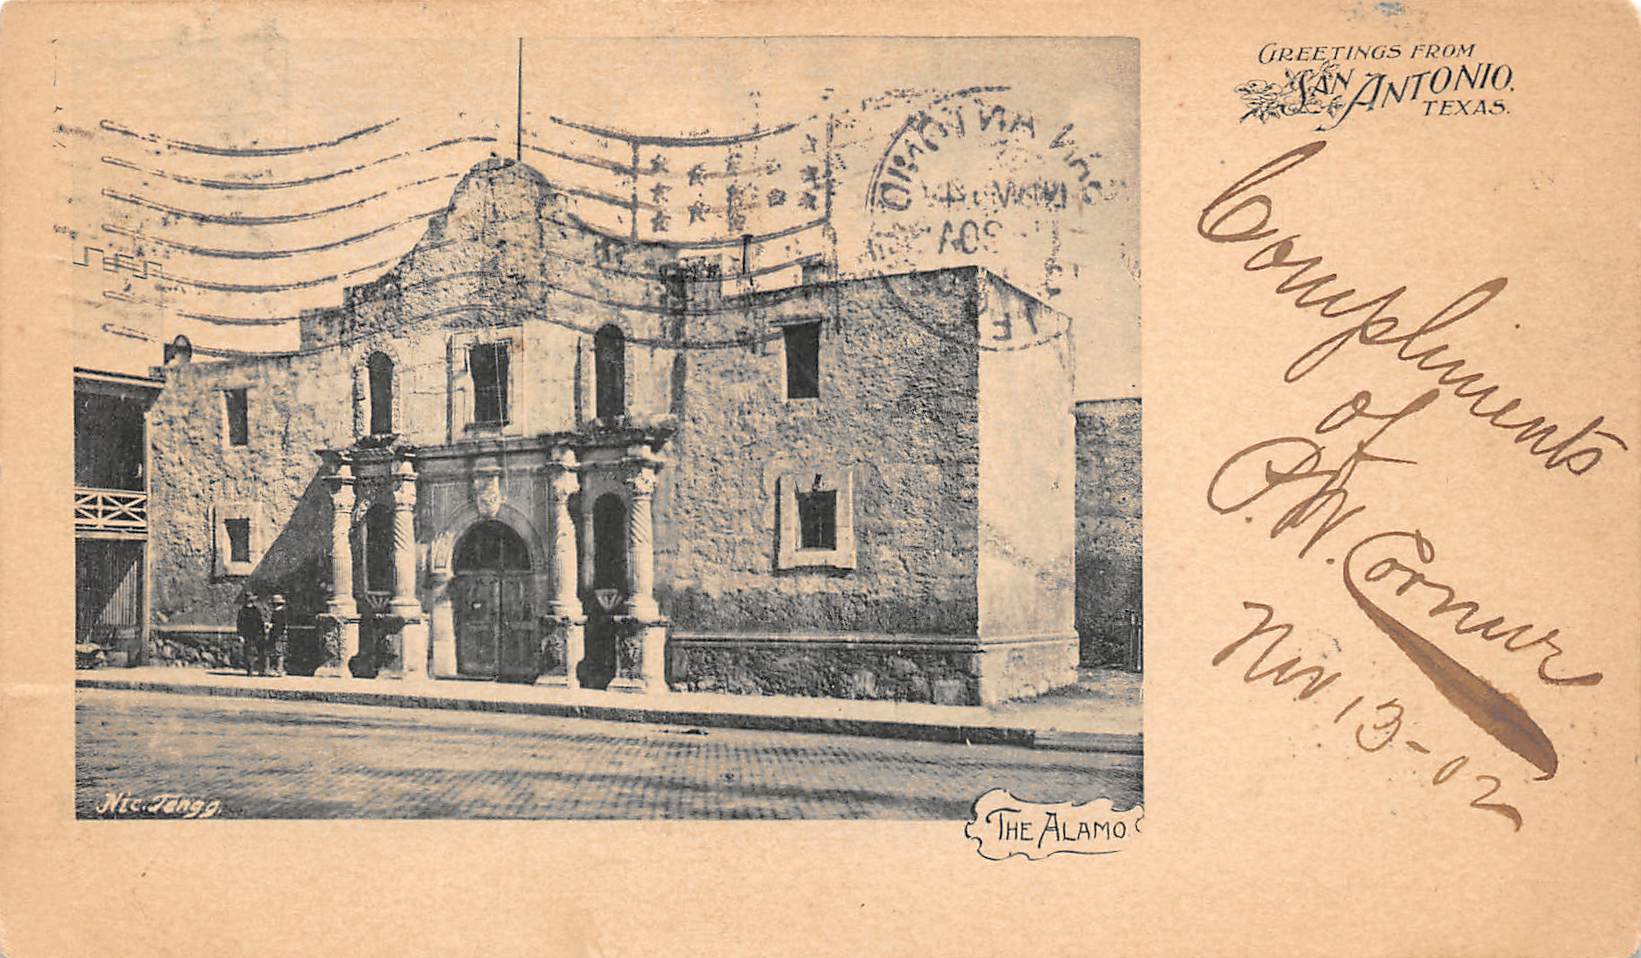 GREETINGS FROM
SAN ANTONIO,
TEXAS.
Compliments
of
P. W. Cornur
Nov 13-02
Nic. Tengg.
THE ALAMO